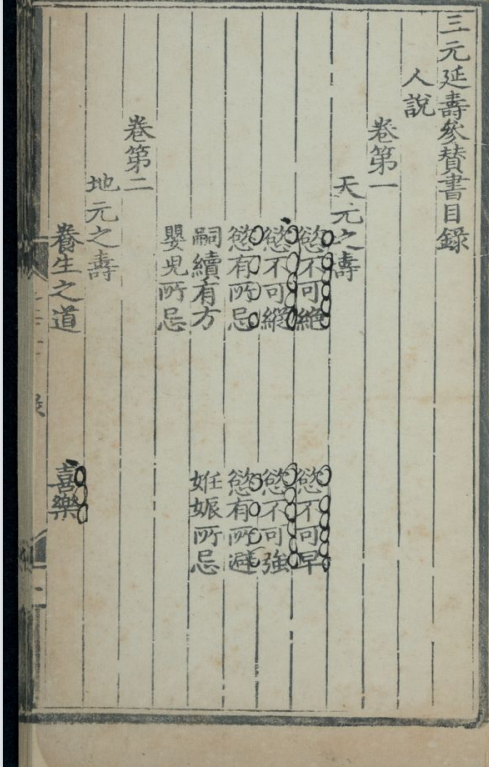 三元延壽參贊書目錄
人說
卷第一
天元之壽
慾不可絕　慾不可早
慾不可縱　慾不可強
慾有所忌　慾有所避
嗣續有方　姙娠所忌
嬰兒所忌
卷第二
地元之壽
養生之道　喜樂